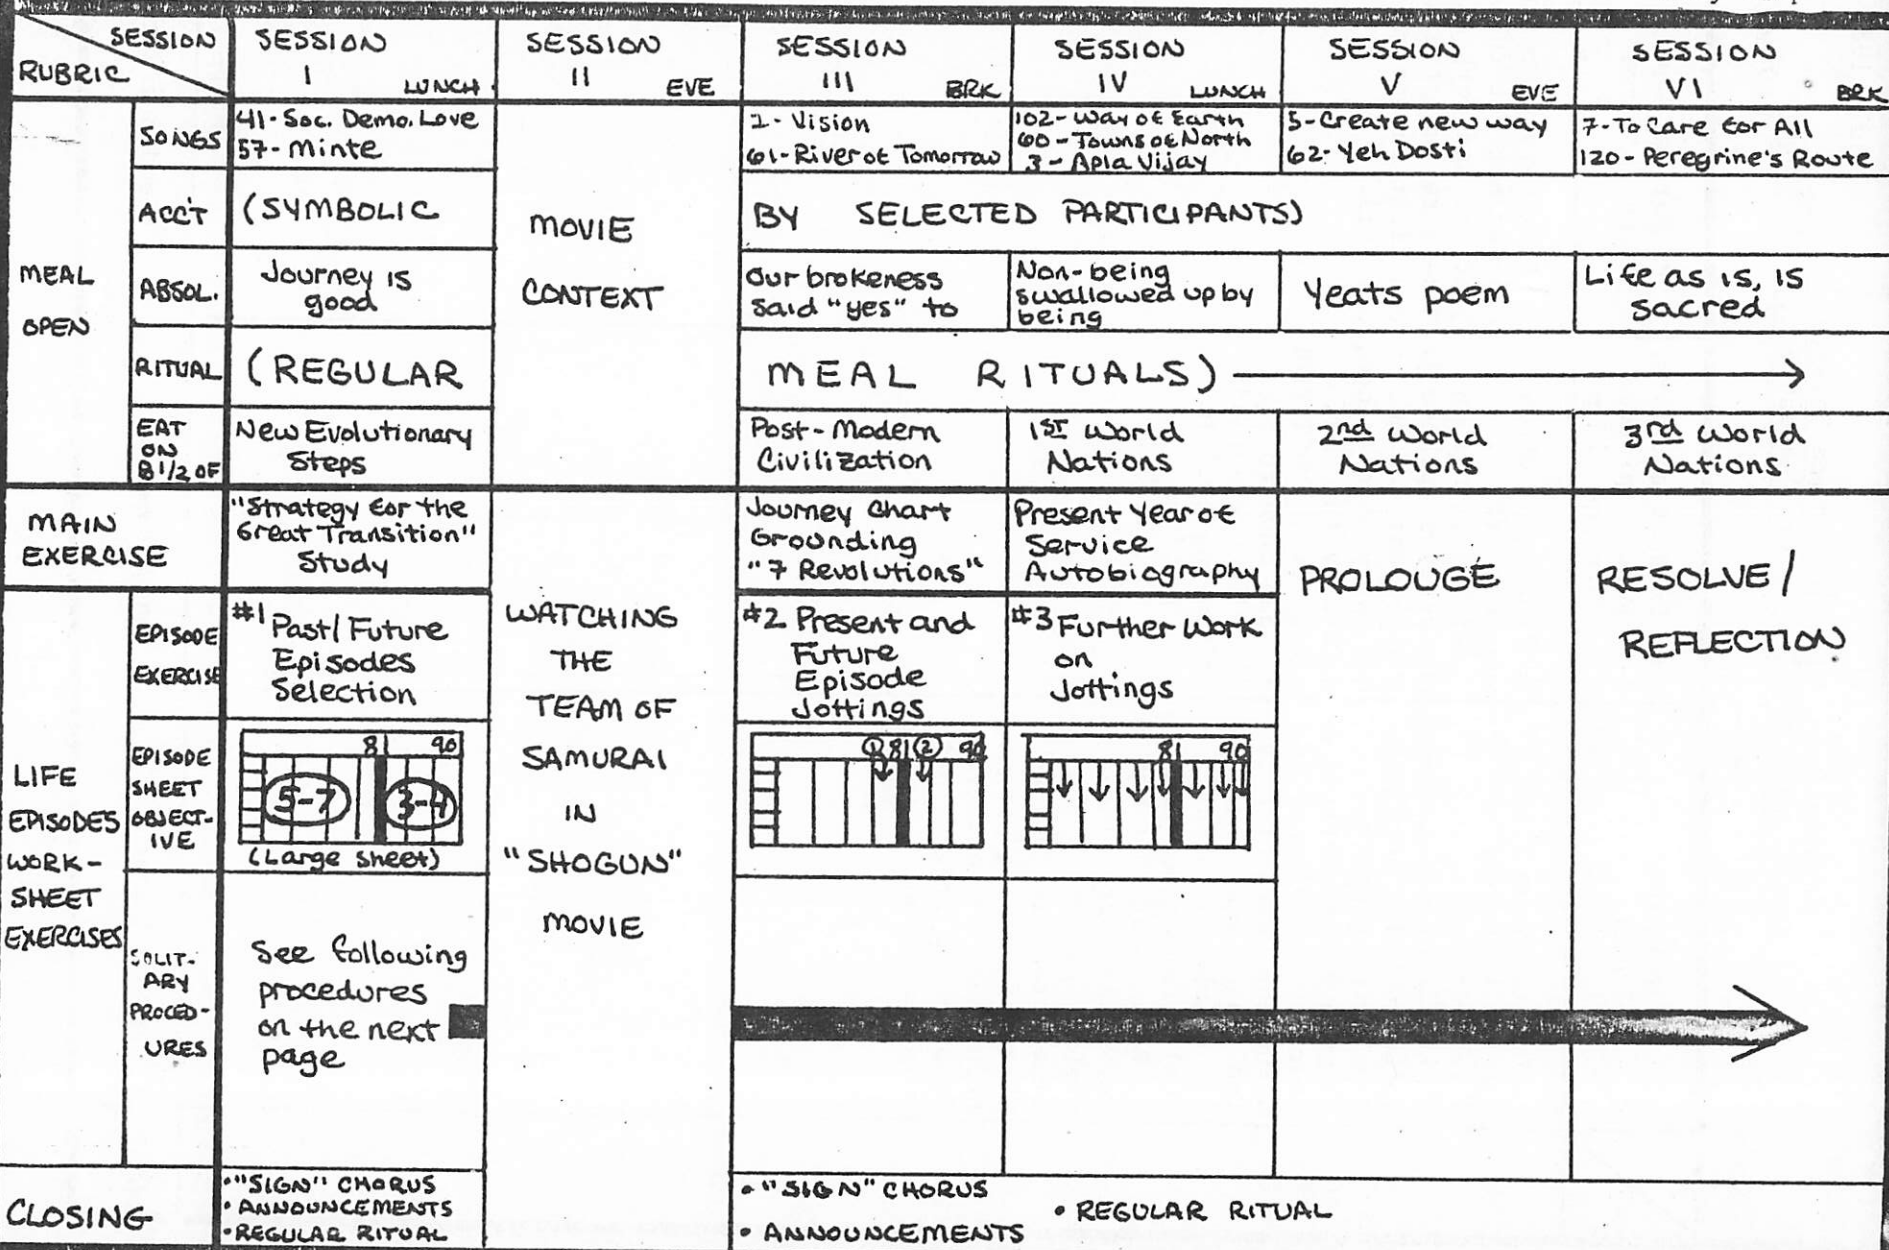 SESSION
RUBRIC
SESSION
I LUNCH
SESSION
II EVE
SESSION
III BRK
SESSION
IV LUNCH
SESSION
V EVE
SESSION
VI BRK
MEAL
OPEN
SONGS
41-Soc. Demo. Love
57-Minte
1-Vision
61-River of Tomorrow
102-Way of Earth
60-Towns of North
3-Apla Vijay
5-Create new way
62-Yeh Dosti
7-To Care for All
120-Peregrine's Route
ACC'T
(SYMBOLIC
BY SELECTED PARTICIPANTS)
MOVIE
CONTEXT
ABSOL.
Journey is
good
Our brokeness
said "yes" to
Non-being
swallowed up by
being
Yeats poem
Life as is, is
sacred
RITUAL
(REGULAR
MEAL RITUALS)
EAT
ON
8 1/2 OF
New Evolutionary
Steps
Post-Modern
Civilization
1ST World
Nations
2nd World
Nations
3rd World
Nations
MAIN
EXERCISE
"Strategy for the
Great Transition"
Study
Journey Chart
Grounding
"7 Revolutions"
Present Year of
Service
Autobiography
PROLOUGE
RESOLVE/
REFLECTION
WATCHING
THE
TEAM OF
SAMURAI
IN
"SHOGUN"
MOVIE
LIFE
EPISODES
WORK-
SHEET
EXERCISES
EPISODE
EXERCISE
#1 Past/Future
Episodes
Selection
#2 Present and
Future
Episode
Jottings
#3 Further Work
on
Jottings
EPISODE
SHEET
OBJECT-
IVE
81 90
5-7 3-4
(Large sheet)
1 81 2 90
81 90
SOLIT-
ARY
PROCED-
URES
See following
procedures
on the next
page
CLOSING
• "SIGN" CHORUS
• ANNOUNCEMENTS
• REGULAR RITUAL
• "SIGN" CHORUS
• ANNOUNCEMENTS
• REGULAR RITUAL